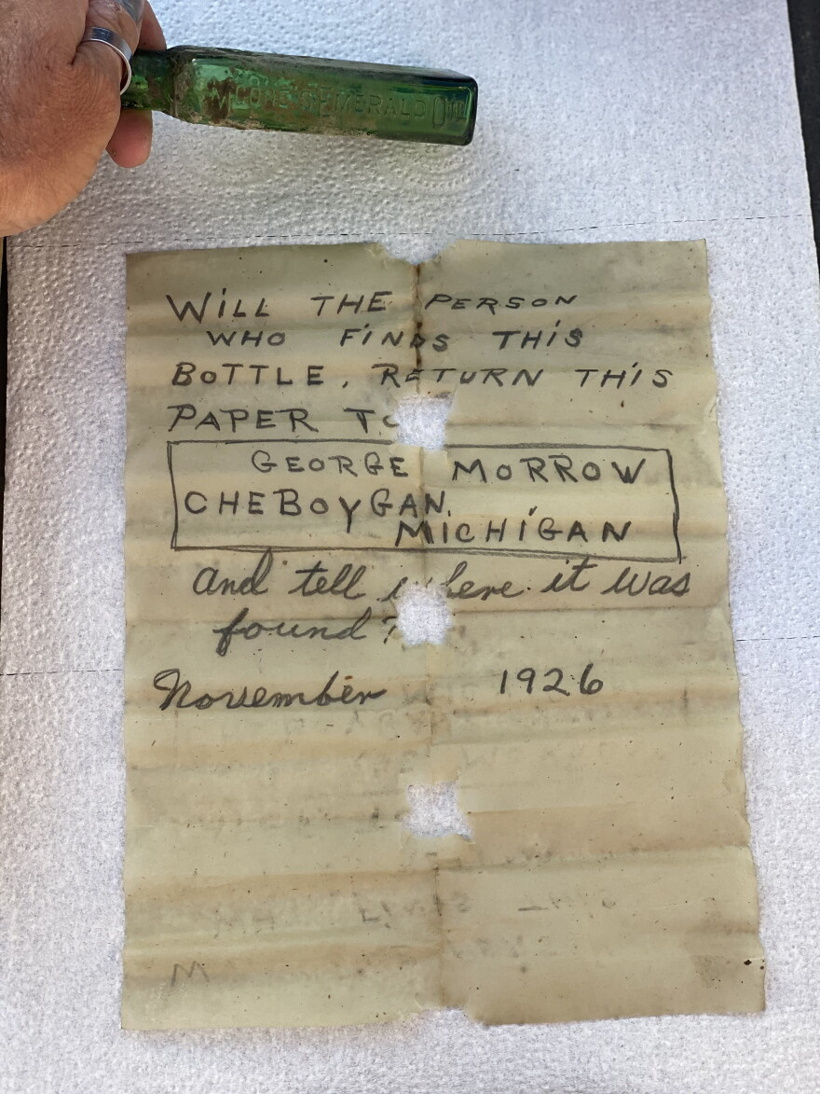 MOONE'S EMERALD OIL
WILL THE PERSON
WHO FINDS THIS
BOTTLE, RETURN THIS
PAPER TO
GEORGE MORROW
CHEBOYGAN,
MICHIGAN
and tell where it was
found?
November 1926